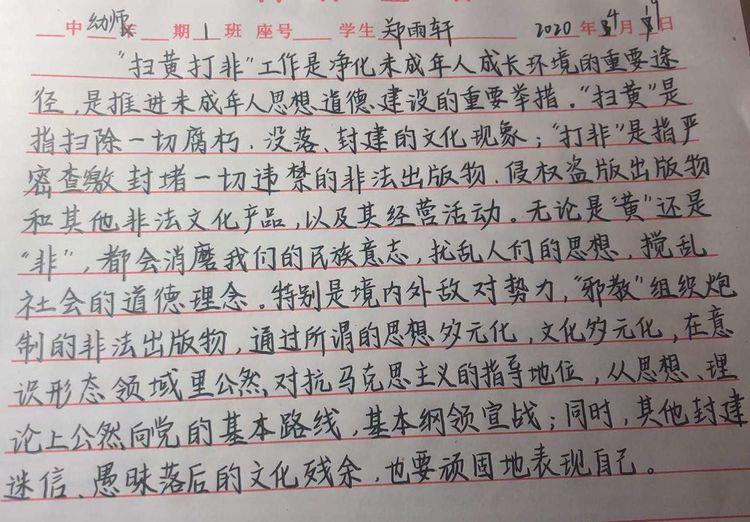 中幼师 年 期 1 班 座号 学生 郑雨轩 2020 年 4 月 19 日
“扫黄打非”工作是净化未成年人成长环境的重要途
径,是推进未成年人思想道德建设的重要举措。“扫黄”是
指扫除一切腐朽、没落、封建的文化现象;“打非”是指严
密查缴封堵一切违禁的非法出版物、侵权盗版出版物
和其他非法文化产品,以及其经营活动。无论是“黄”还是
“非”,都会消磨我们的民族意志,扰乱人们的思想,搅乱
社会的道德理念。特别是境内外敌对势力,“邪教”组织炮
制的非法出版物,通过所谓的思想多元化,文化多元化,在意
识形态领域里公然对抗马克思主义的指导地位,从思想、理
论上公然向党的基本路线,基本纲领宣战;同时,其他封建
迷信、愚昧落后的文化残余,也要顽固地表现自己。